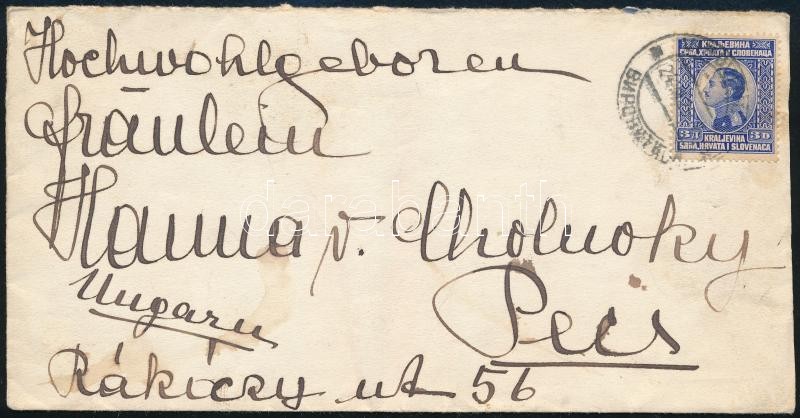 Hochwohlgeboren
Fräulein
Hanna v. Cholnoky
Ungarn
Pécs
Rákóczy ut 56
КРАЉЕВИНА
СРБА, ХРВАТА И СЛОВЕНАЦА
3Д 3D
KRALJEVINA
SRBA, HRVATA I SLOVENACA
darabanth